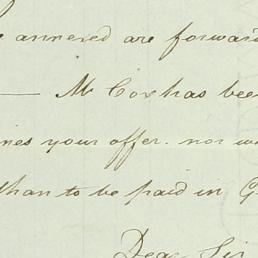 annexed are forward
— Mr Cox has bee
ines your offer. nor w
than to be paid in G
Dear Sir